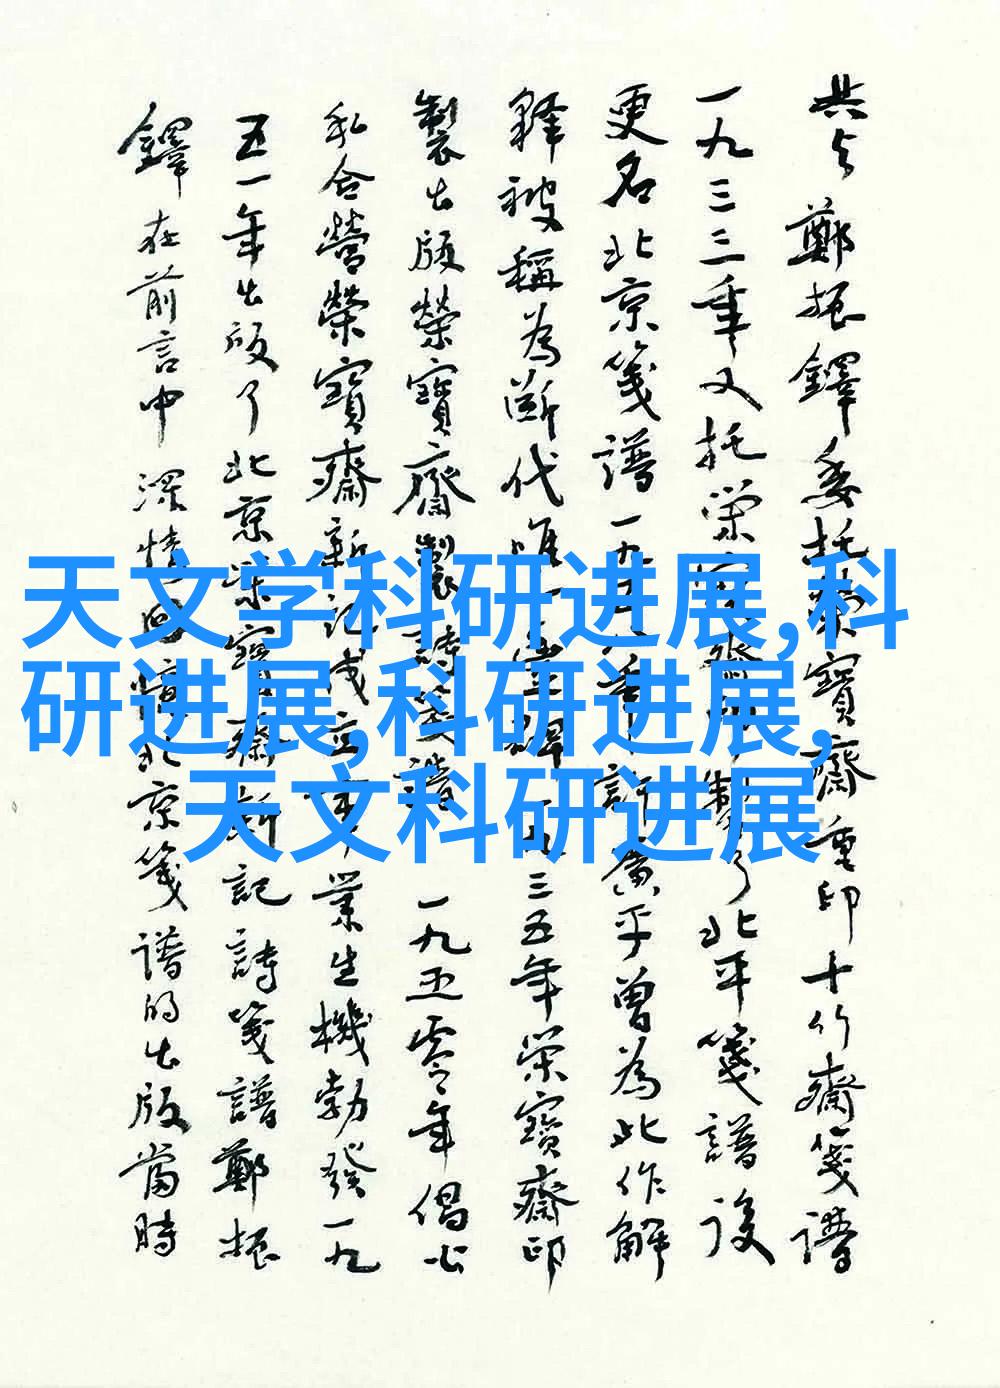 共与鄭振鐸委托榮寶齋重印十竹齋箋譜
一九三三年又托榮寶齋印製了北平箋譜後
更名北京箋譜一九五八年許廣平曾為此作解
釋被稱為斷代唯一豐碑一九三五年榮寶齋印
製出版榮寶齋製詩箋譜一九五零年倡公
私合營榮寶齋新記成立事業生機勃發一九
五一年出版了北京榮寶齋新記詩箋譜鄭振
鐸在前言中深情回憶北京箋譜的出版當時
天文学科研进展,科
研进展,科研进展,
天文科研进展